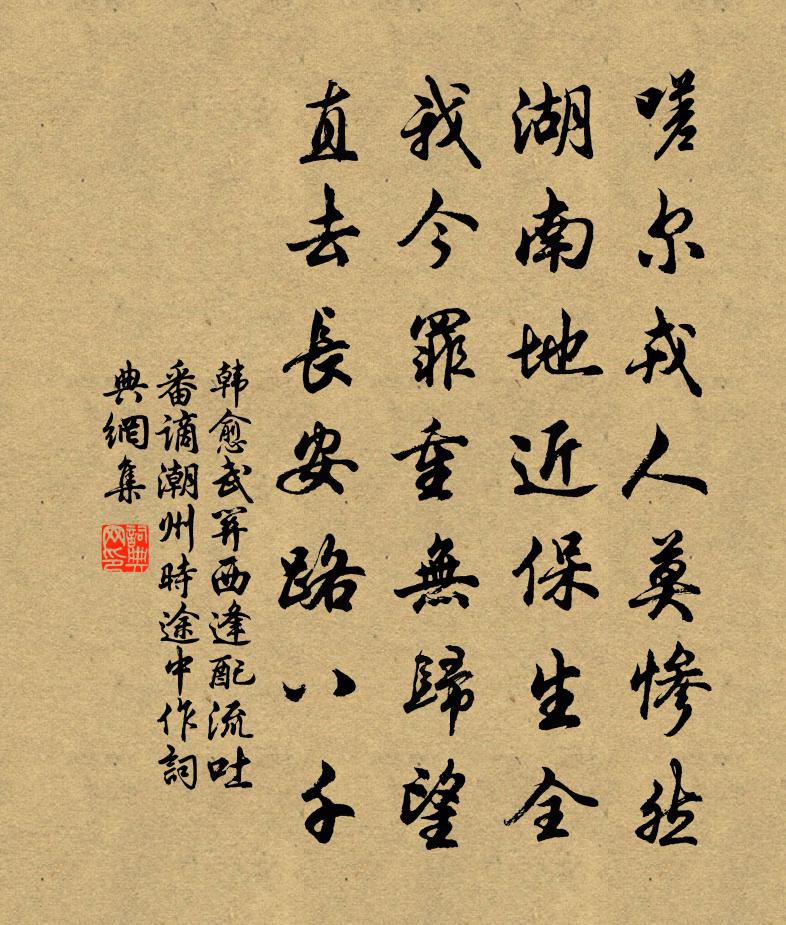 嗟尔戎人莫惨然
湖南地近保生全
我今罪重無歸望
直去長安路八千
韩愈武关西逢配流吐
番谪潮州時途中作詞
典網集
詞典网印